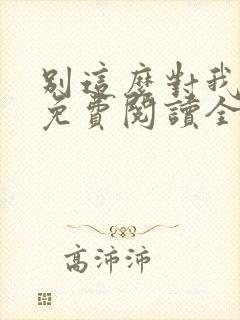 別這麼對我
免費閱讀全
高沛沛